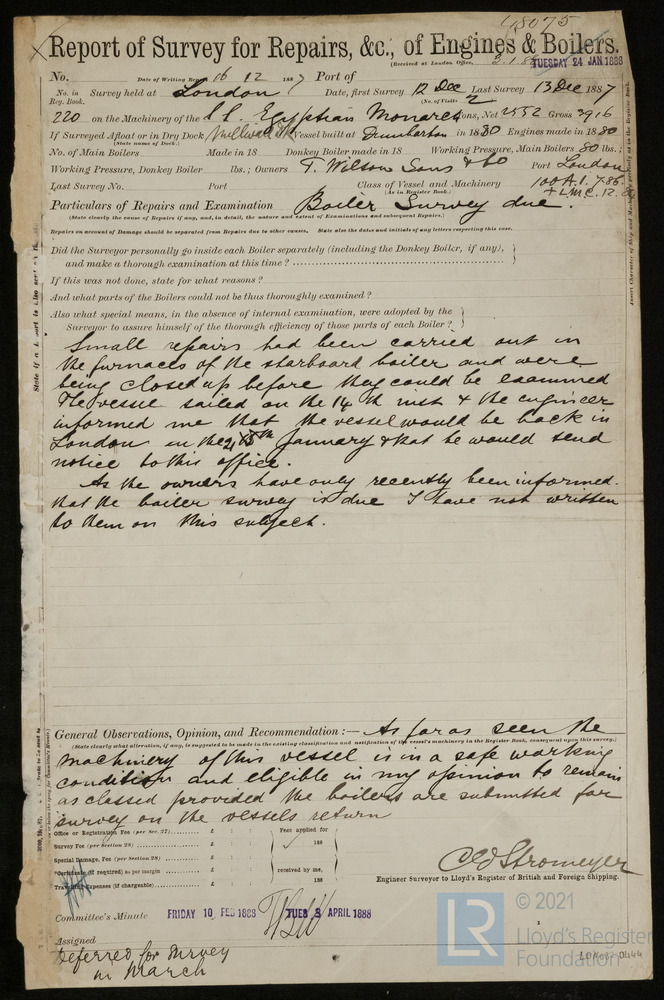 48075
Report of Survey for Repairs, &c., of Engines & Boilers.
(Received at London Office, 3.1.88 TUESDAY 24 JAN 1888
No. Date of Writing Report 16 12 1887 Port of
No. in Reg. Book. Survey held at London Date, first Survey 12 Dec Last Survey 13 Dec 1887
(No. of Visits 2
220 on the Machinery of the S.S. Egyptian Monarch Tons, Net 2552 Gross 3916
If Surveyed Afloat or in Dry Dock Millwall Dk Vessel built at Dumbarton in 1880 Engines made in 1880
(State name of Dock.)
No. of Main Boilers Made in 18 Donkey Boiler made in 18 Working Pressure, Main Boilers 80 lbs.;
Working Pressure, Donkey Boiler lbs.; Owners T. Wilson Sons & Co Port London
Last Survey No. Port Class of Vessel and Machinery 100A.1. 7.86.
(As in Register Book.) + LMC. 12.
Particulars of Repairs and Examination Boiler Survey due.
(State clearly the cause of Repairs if any, and, in detail, the nature and extent of Examinations and subsequent Repairs.)
Repairs on account of Damage should be separated from Repairs due to other causes. State also the dates and initials of any letters respecting this case.
Did the Surveyor personally go inside each Boiler separately (including the Donkey Boiler, if any), }
and make a thorough examination at this time ?
If this was not done, state for what reasons ?
And what parts of the Boilers could not be thus thoroughly examined ?
Also what special means, in the absence of internal examination, were adopted by the }
Surveyor to assure himself of the thorough efficiency of those parts of each Boiler ?
Small repairs had been carried out in
the furnaces of the starboard boiler and were
being closed up before they could be examined
The vessel sailed on the 14th inst & the engineer
informed me that the vessel would be back in
London on the January & that he would send
notice to this office.
As the owners have only recently been informed
that the boiler survey is due I have not written
to them on this subject.
General Observations, Opinion, and Recommendation :— As far as seen the
(State clearly what alteration, if any, is suggested to be made in the existing classification and notification of the vessel's machinery in the Register Book, consequent upon this survey.)
machinery of this vessel is in a safe working
condition and eligible in my opinion to remain
as classed provided the boilers are submitted for
survey on the vessels return
Office or Registration Fee (per Sec. 27) £ : : Fees applied for
Survey Fee (per Section 28) £ : : 188
Special Damage, Fee (per Section 28) £ : :
*Certificate (if required) as per margin £ : : received by me,
Travelling Expenses (if chargeable) £ : : 188
C E Stromeyer
Engineer Surveyor to Lloyd's Register of British and Foreign Shipping.
Committee's Minute FRIDAY 10 FEB 1888 TUES 3 APRIL 1888
Assigned
Deferred for survey
in March
LR
© 2021
Lloyd's Register
Foundation